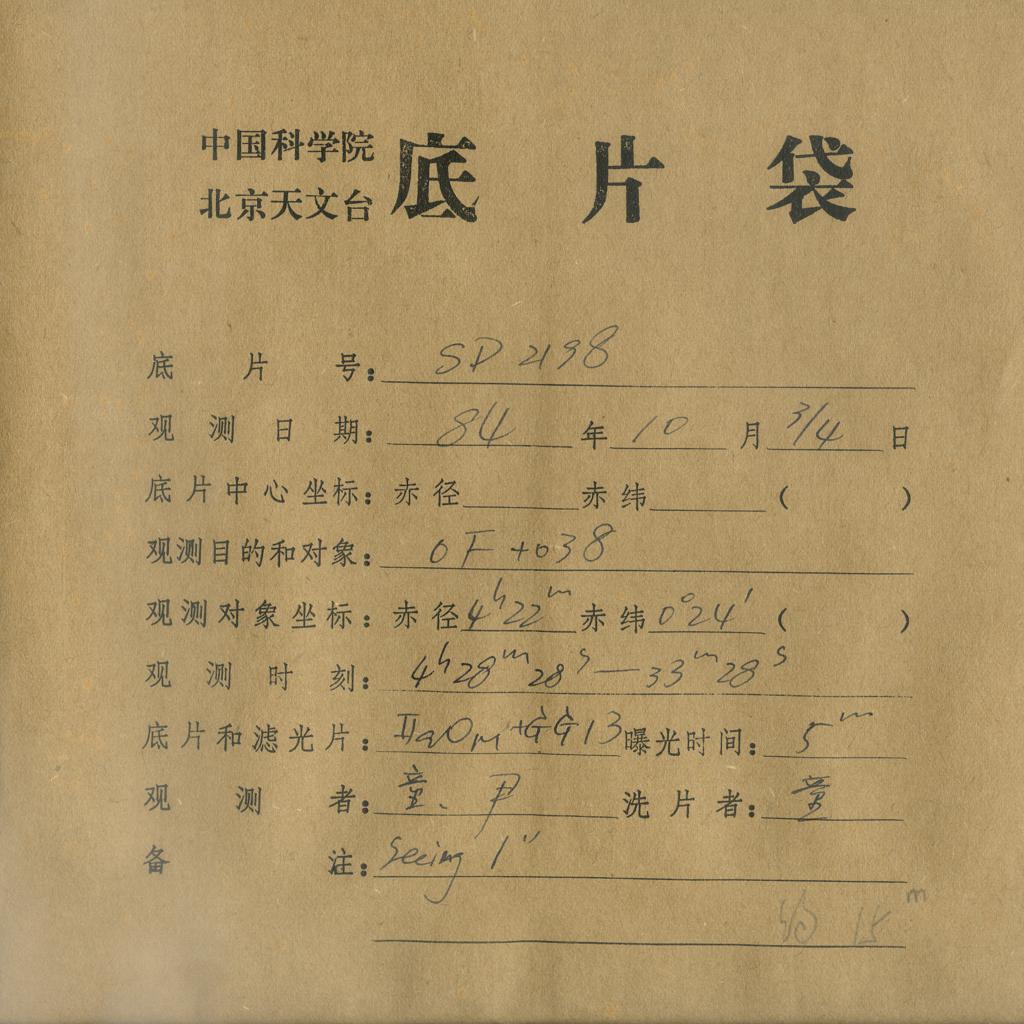 中国科学院
北京天文台
底片袋
底片号: SP 2198
观测日期: 84 年 10 月 3/4 日
底片中心坐标: 赤径 赤纬 ( )
观测目的和对象: OF +038
观测对象坐标: 赤径 4h22m 赤纬 0°24′ ( )
观测时刻: 4h28m28s—33m28s
底片和滤光片: IIaO +GG13 曝光时间: 5m
观测者: 童、尹 洗片者: 童
备注: Seeing 1″
约 15m